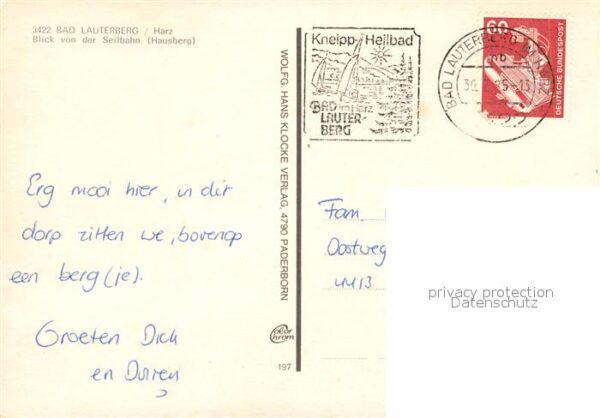 3422 BAD LAUTERBERG / Harz
Blick von der Seilbahn (Hausberg)
Erg mooi hier, in dit
dorp zitten we, bovenop
een berg(je).
Groeten Dick
en
WOLFG. HANS KLOCKE VERLAG, 4790 PADERBORN
color
chrom
197
Kneipp-Heilbad
BAD im Harz
LAUTER-
BERG
BAD LAUTERBERG IM HARZ
mb
60
DEUTSCHE BUNDESPOST
Fam
Oostweg
4413
privacy protection
Datenschutz